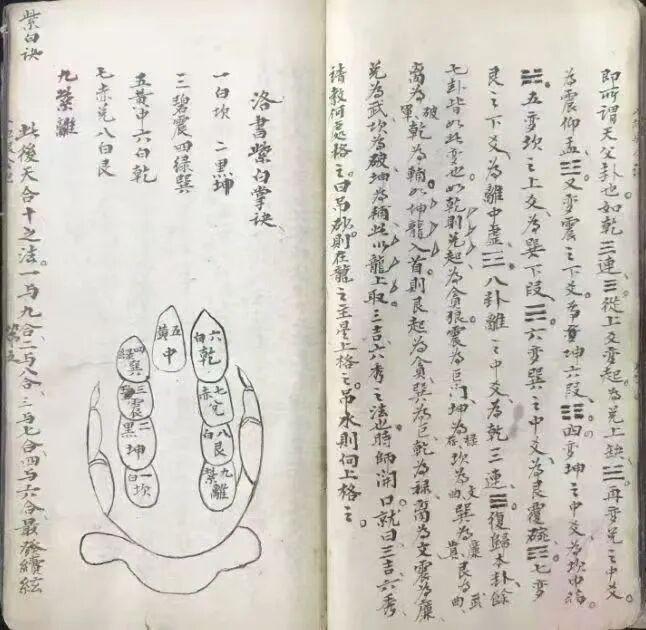 即所謂天父卦也如乾三連☰從上爻变起為兑上缺☱再变兑之中爻
為震仰盂☳又变震之下爻為坤六段☷四变坤之中爻為坎中滿
☵五变坎之上爻為巽下段☴六变巽之中爻為艮覆碗☶七变
艮之下爻為離中虚☲八卦離之中爻為乾三連☰復歸本卦餘
七卦皆如此变也如乾則兑起為貪狼震為巨门坤為禄存坎為文曲巽為廉貞艮為武曲
离為破軍乾為輔如坤龍入首則艮起為貪巽為巨乾為禄离為文震為廉
兑為武坎為破坤為輔此以龍上取三吉六秀之法也時師開口就曰三吉六秀
請教何起格之曰吊砂則在龍之主星上格之吊水則向上格之
洛書紫白掌訣
一白坎 二黑坤
三碧震四綠巽
五黄中六白乾
七赤兑八白艮
九紫離
六白乾
七赤兑
八白艮
九紫離
五黄中
四綠巽
三震
二黑坤
一白坎
紫白訣
此後天合十之法一与九合二与八合三与七合四与六合最